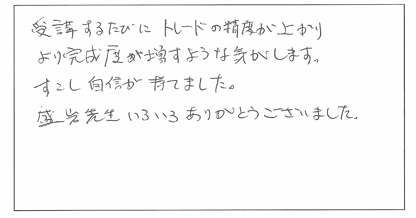 受講するたびに トレードの精度が上がり
より完成度が増すような気がします。
すこし自信が持てました。
盛岩先生いろいろありがとうございました。